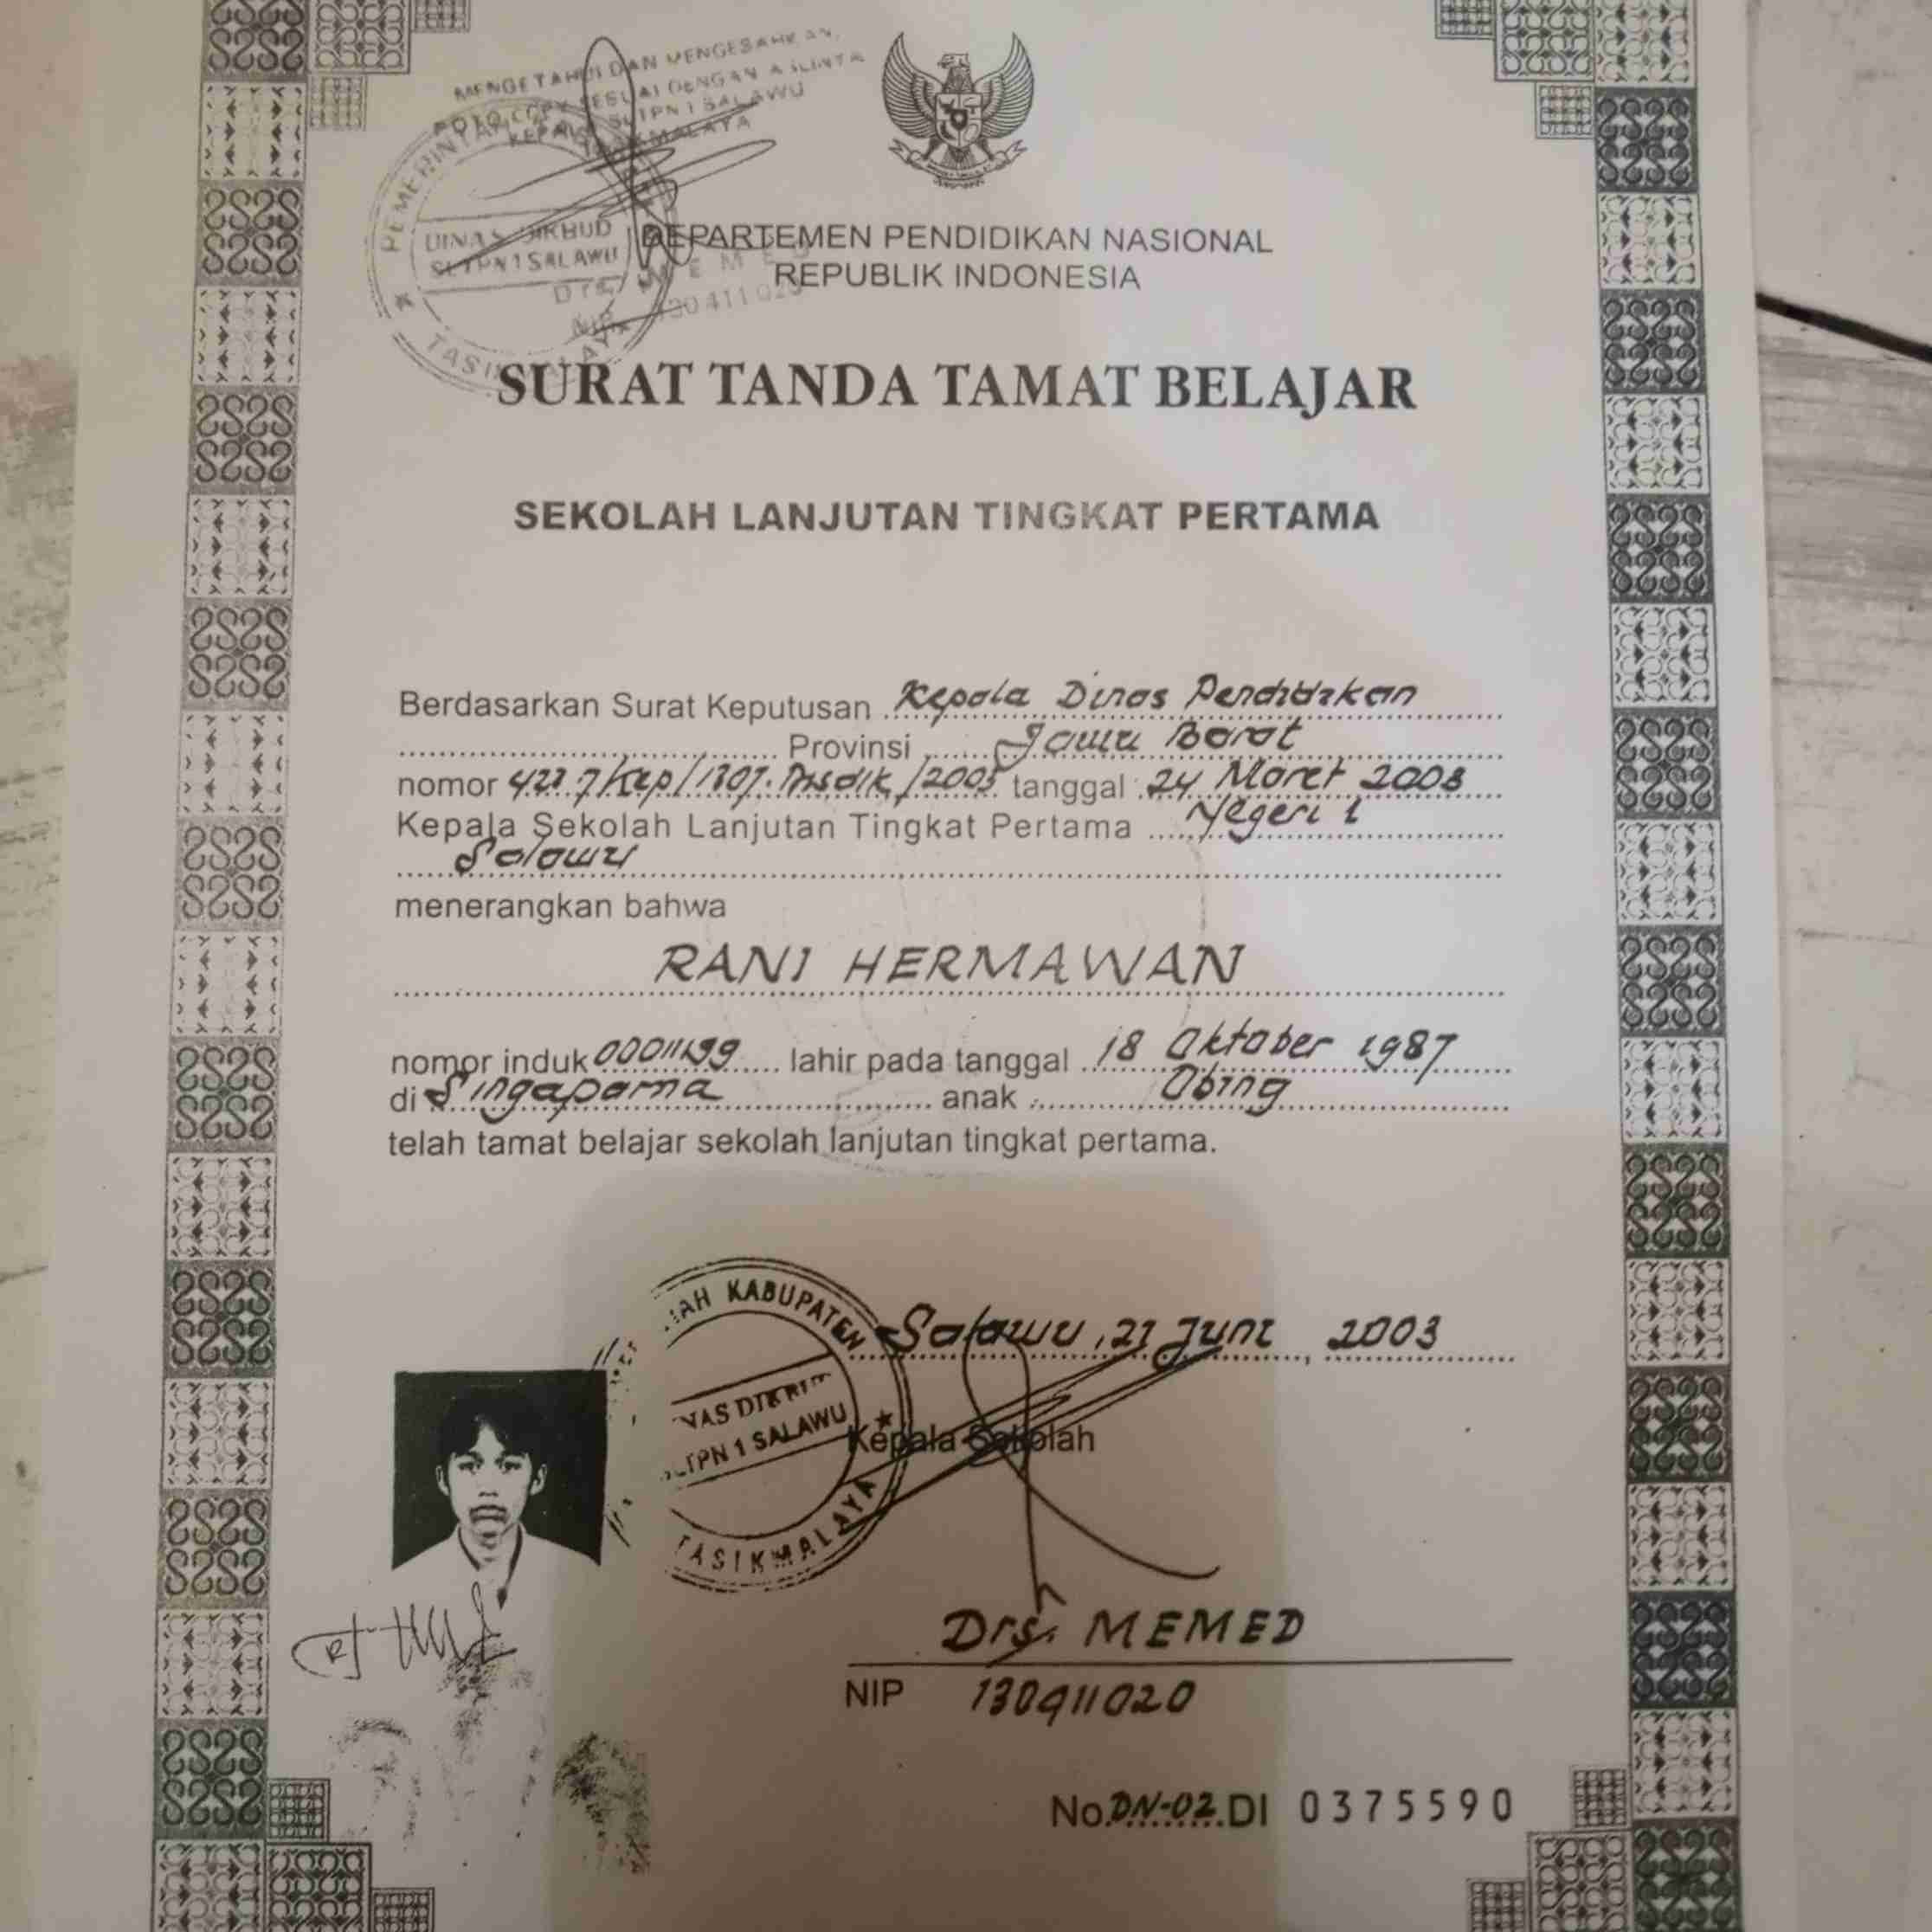 MENGETAHUI DAN MENGESAHKAN,
FOTO COPY SESUAI DENGAN ASLINYA
KEPALA SLTPN 1 SALAWU
TASIKMALAYA
PEMERINTAH
DINAS DIKBUD
SLTPN 1 SALAWU
TASIKMALAYA
Drs. MEMED
NIP.
DEPARTEMEN PENDIDIKAN NASIONAL
REPUBLIK INDONESIA
SURAT TANDA TAMAT BELAJAR
SEKOLAH LANJUTAN TINGKAT PERTAMA
Berdasarkan Surat Keputusan Kepala Dinas Pendidikan
Provinsi Jawa Barat
nomor tanggal 24 Maret 2003
Kepala Sekolah Lanjutan Tingkat Pertama Negeri 1
Salawu
menerangkan bahwa
RANI HERMAWAN
nomor induk lahir pada tanggal 18 Oktober 1987
di Singaparna anak Obing
telah tamat belajar sekolah lanjutan tingkat pertama.
KABUPATEN
NAS DIKBUD
SLTPN 1 SALAWU
TASIKMALAYA
Salawu, Juni, 2003
Kepala Sekolah
Drs. MEMED
NIP
No. DN-02 DI 0375590